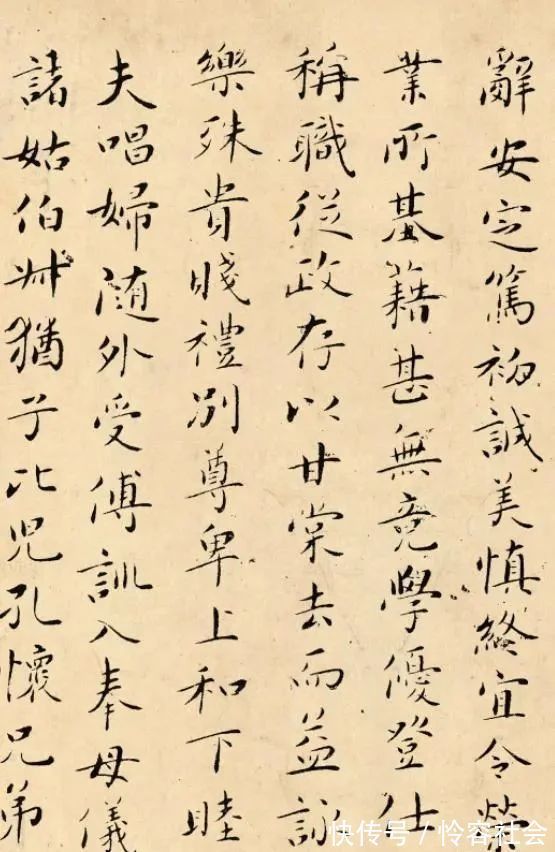 辭安定篤初誠美慎終宜令榮
業所基藉甚無竟學優登仕
稱職從政存以甘棠去而益詠
樂殊貴賤禮別尊卑上和下睦
夫唱婦随外受傅訓入奉母儀
諸姑伯叔猶子比兒孔懷兄弟
快传号/怜容社会